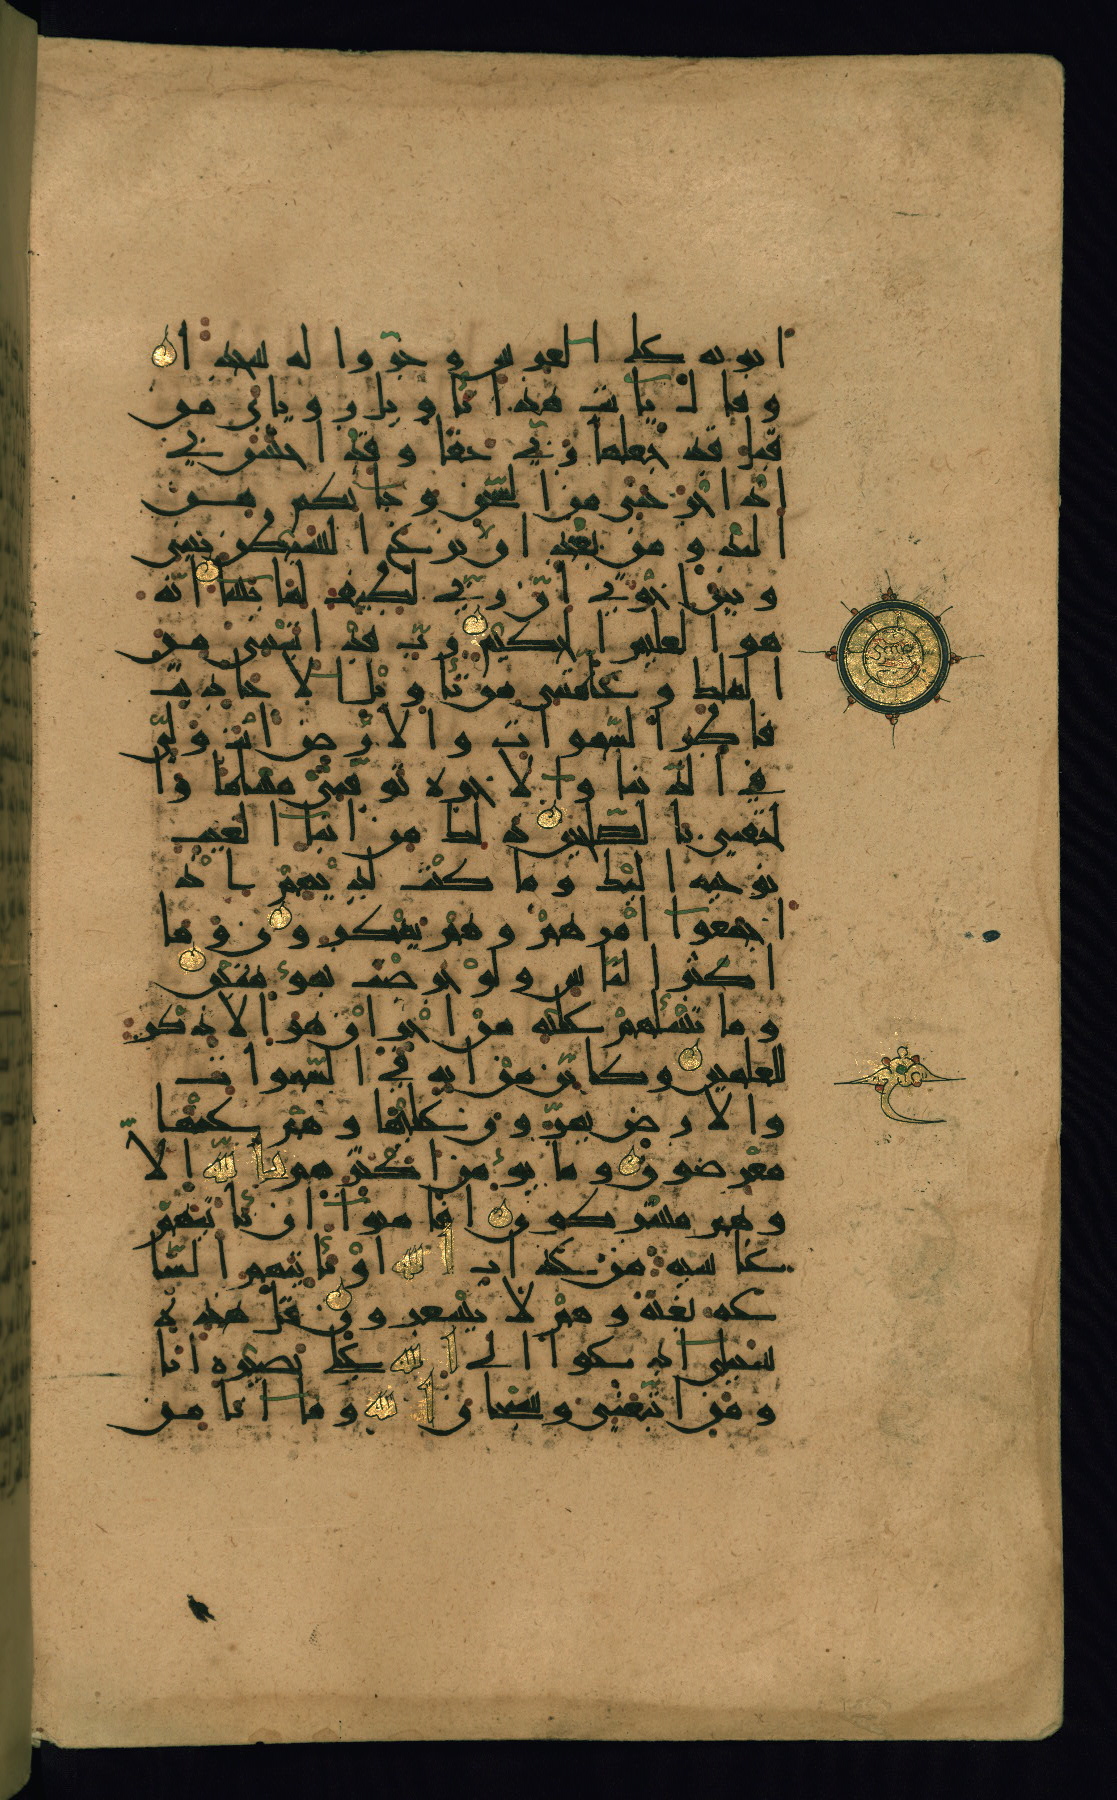 ابويه على العرش وخروا له سجدا
وقال يابت هذا تاويل رويي من
قبل قد جعلها ربي حقا وقد احسن بي
اذ اخرجني من السجن وجا بكم من
البدو من بعد ان نزغ الشيطن بيني
وبين اخوتي ان ربي لطيف لما يشا انه
هو العليم الحكيم رب قد اتيتني من
الملك وعلمتني من تاويل الاحاديث
فاطر السموات والارض انت ولي
في الدنيا والاخرة توفني مسلما وا
لحقني بالصلحين ذلك من انبا الغيب
نوحيه اليك وما كنت لديهم اذ
اجمعوا امرهم وهم يمكرون وما
اكثر الناس ولو حرصت بمومنين
وما تسلهم عليه من اجر ان هو الا ذكر
للعلمين وكاين من اية في السموات
والارض يمرون عليها وهم عنها
معرضون وما يومن اكثرهم بالله الا
وهم مشركون افامنوا ان تاتيهم
غاشية من عذاب الله او تاتيهم السا
عة بغتة وهم لا يشعرون قل هذه
سبيلي ادعوا الى الله على بصيرة انا
ومن اتبعني وسبحان الله وما انا من